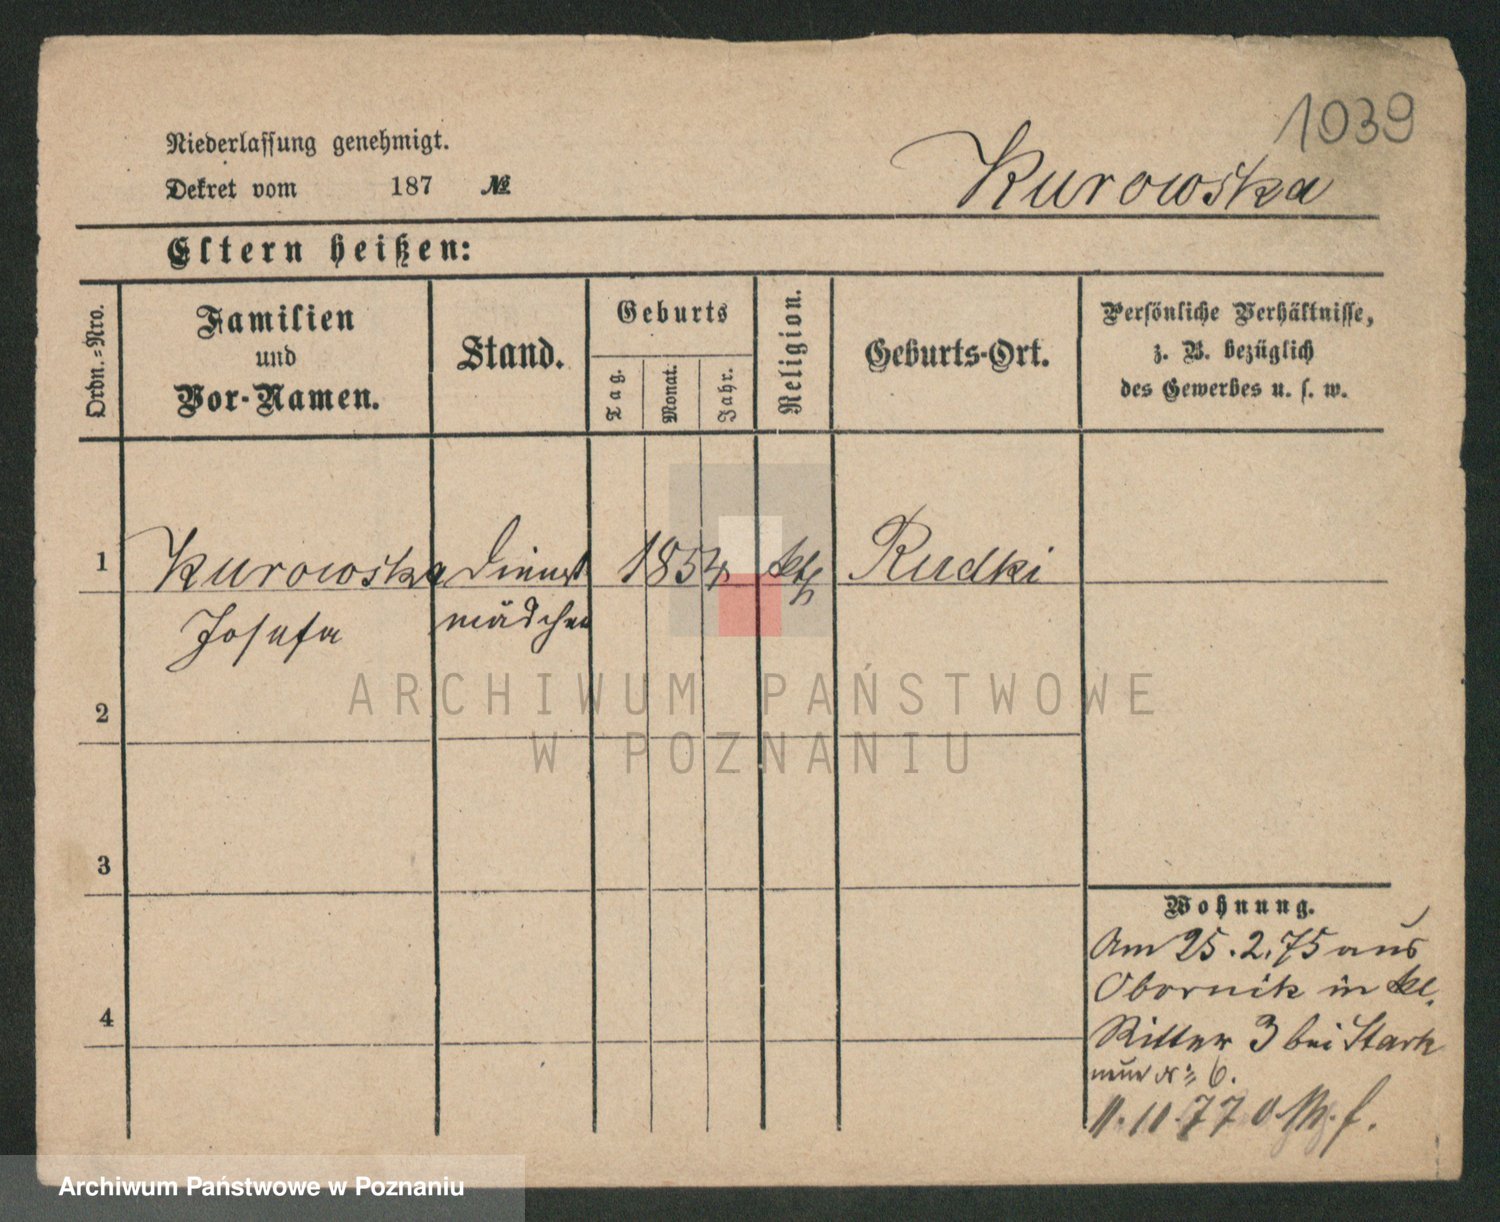 1039
Niederlassung genehmigt.
Dekret vom 187 №
Kurowska
Eltern heißen:
Ordn.=Nro.
Familien
und
Vor-Namen.
Stand.
Geburts
Tag.
Monat.
Jahr.
Religion.
Geburts-Ort.
Persönliche Verhältnisse,
z. B. bezüglich
des Gewerbes u. s. w.
1 Kurowska Dienst 1854 kth Rudki
Josefa mädchen
2
3
4
Wohnung.
Am 25.2.75 aus
Obornik in kl.
Ritter 3 bei Stark
neue No 6.
11.11.77
ARCHIWUM PAŃSTWOWE
W POZNANIU
Archiwum Państwowe w Poznaniu